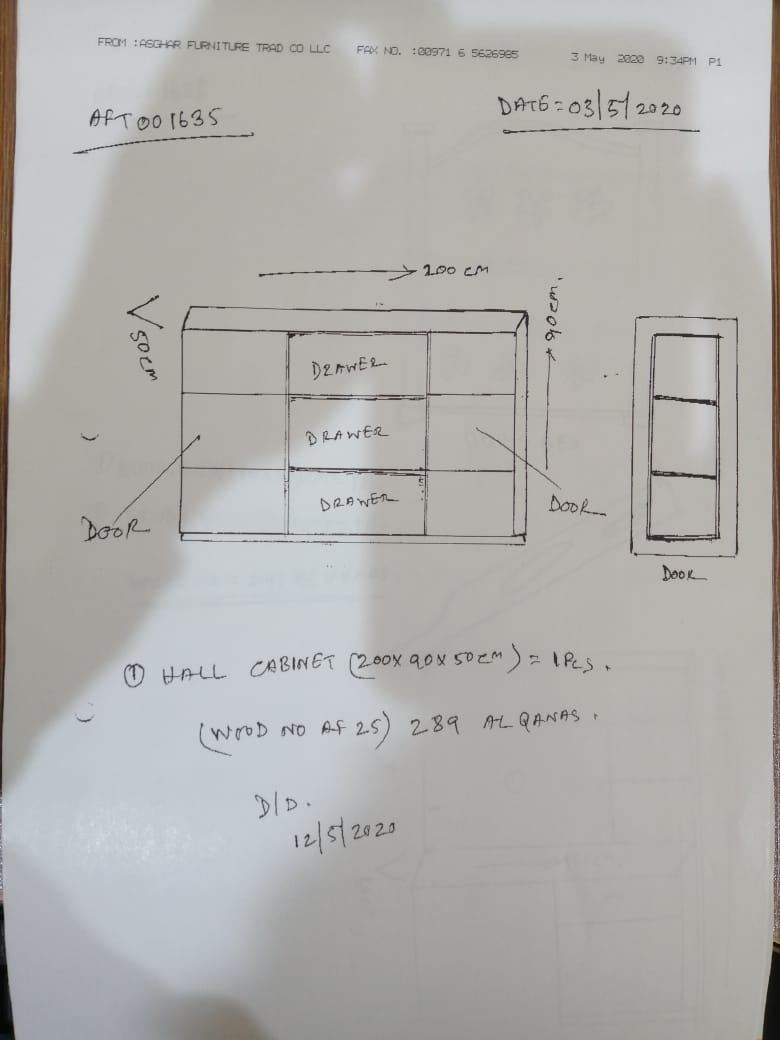 FROM :ASGHAR FURNITURE TRAD CO LLC FAX NO. :00971 6 5626985 3 May 2020 9:34PM P1
AFT001635
DATE=03/5/2020
200 cm
50cm
90cm.
DRAWER
DRAWER
DRAWER
DOOR
DOOR
DOOR
① HALL CABINET (200x90x50cm) = 1PCS.
(WOOD NO AF 25) 289 AL QANAS.
D/D.
12/5/2020